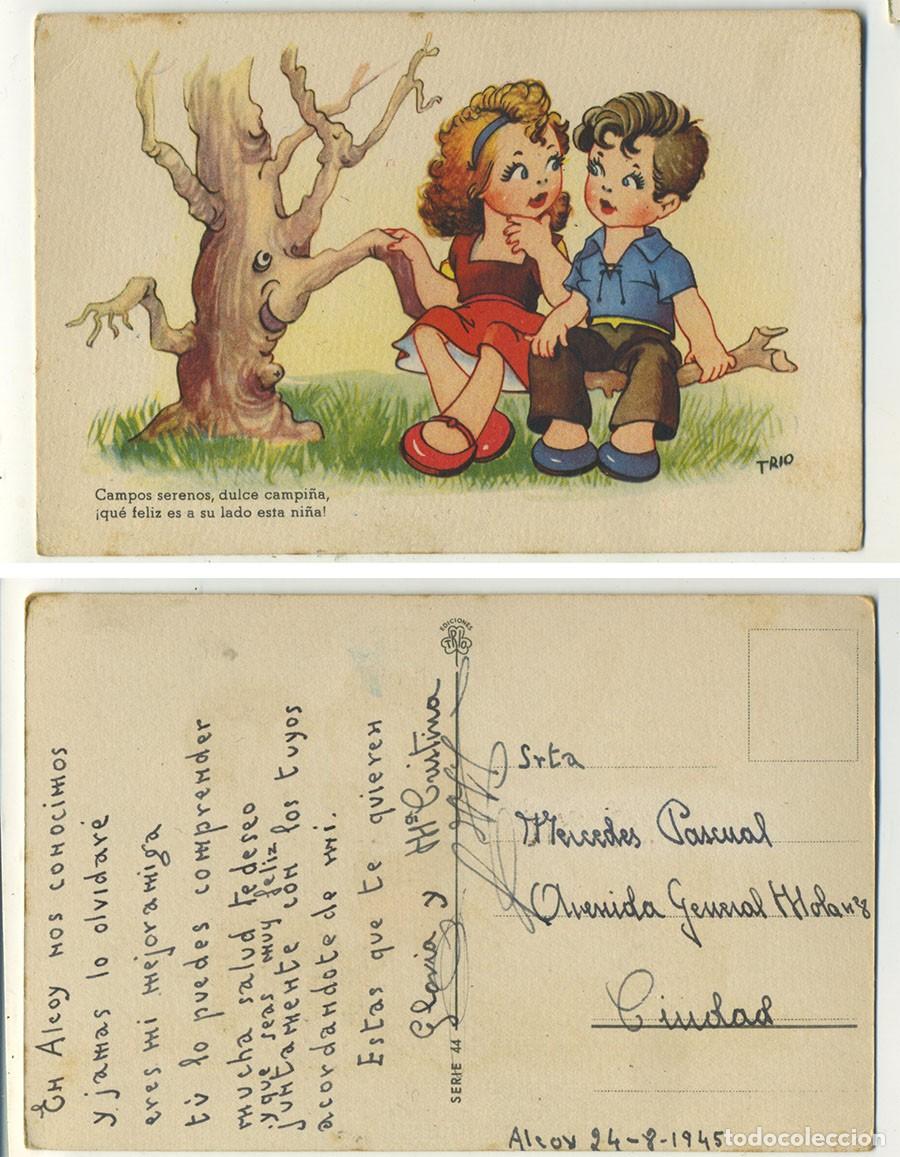 TRIO
Campos serenos, dulce campiña,
¡qué feliz es a su lado esta niña!
En Alcoy nos conocimos
y jamas lo olvidaré
eres mi mejor amiga
tú lo puedes comprender
mucha salud te deseo
y que seas muy feliz
juntamente con los tuyos
acordandote de mi.
Estas que te quieren
Gloria y Mª Cristina
EDICIONES
TRIO
SERIE 44
Srta
Mercedes Pascual
Avenida General Mola nº 8
Ciudad
Alcoy 24-8-1945
todocoleccion